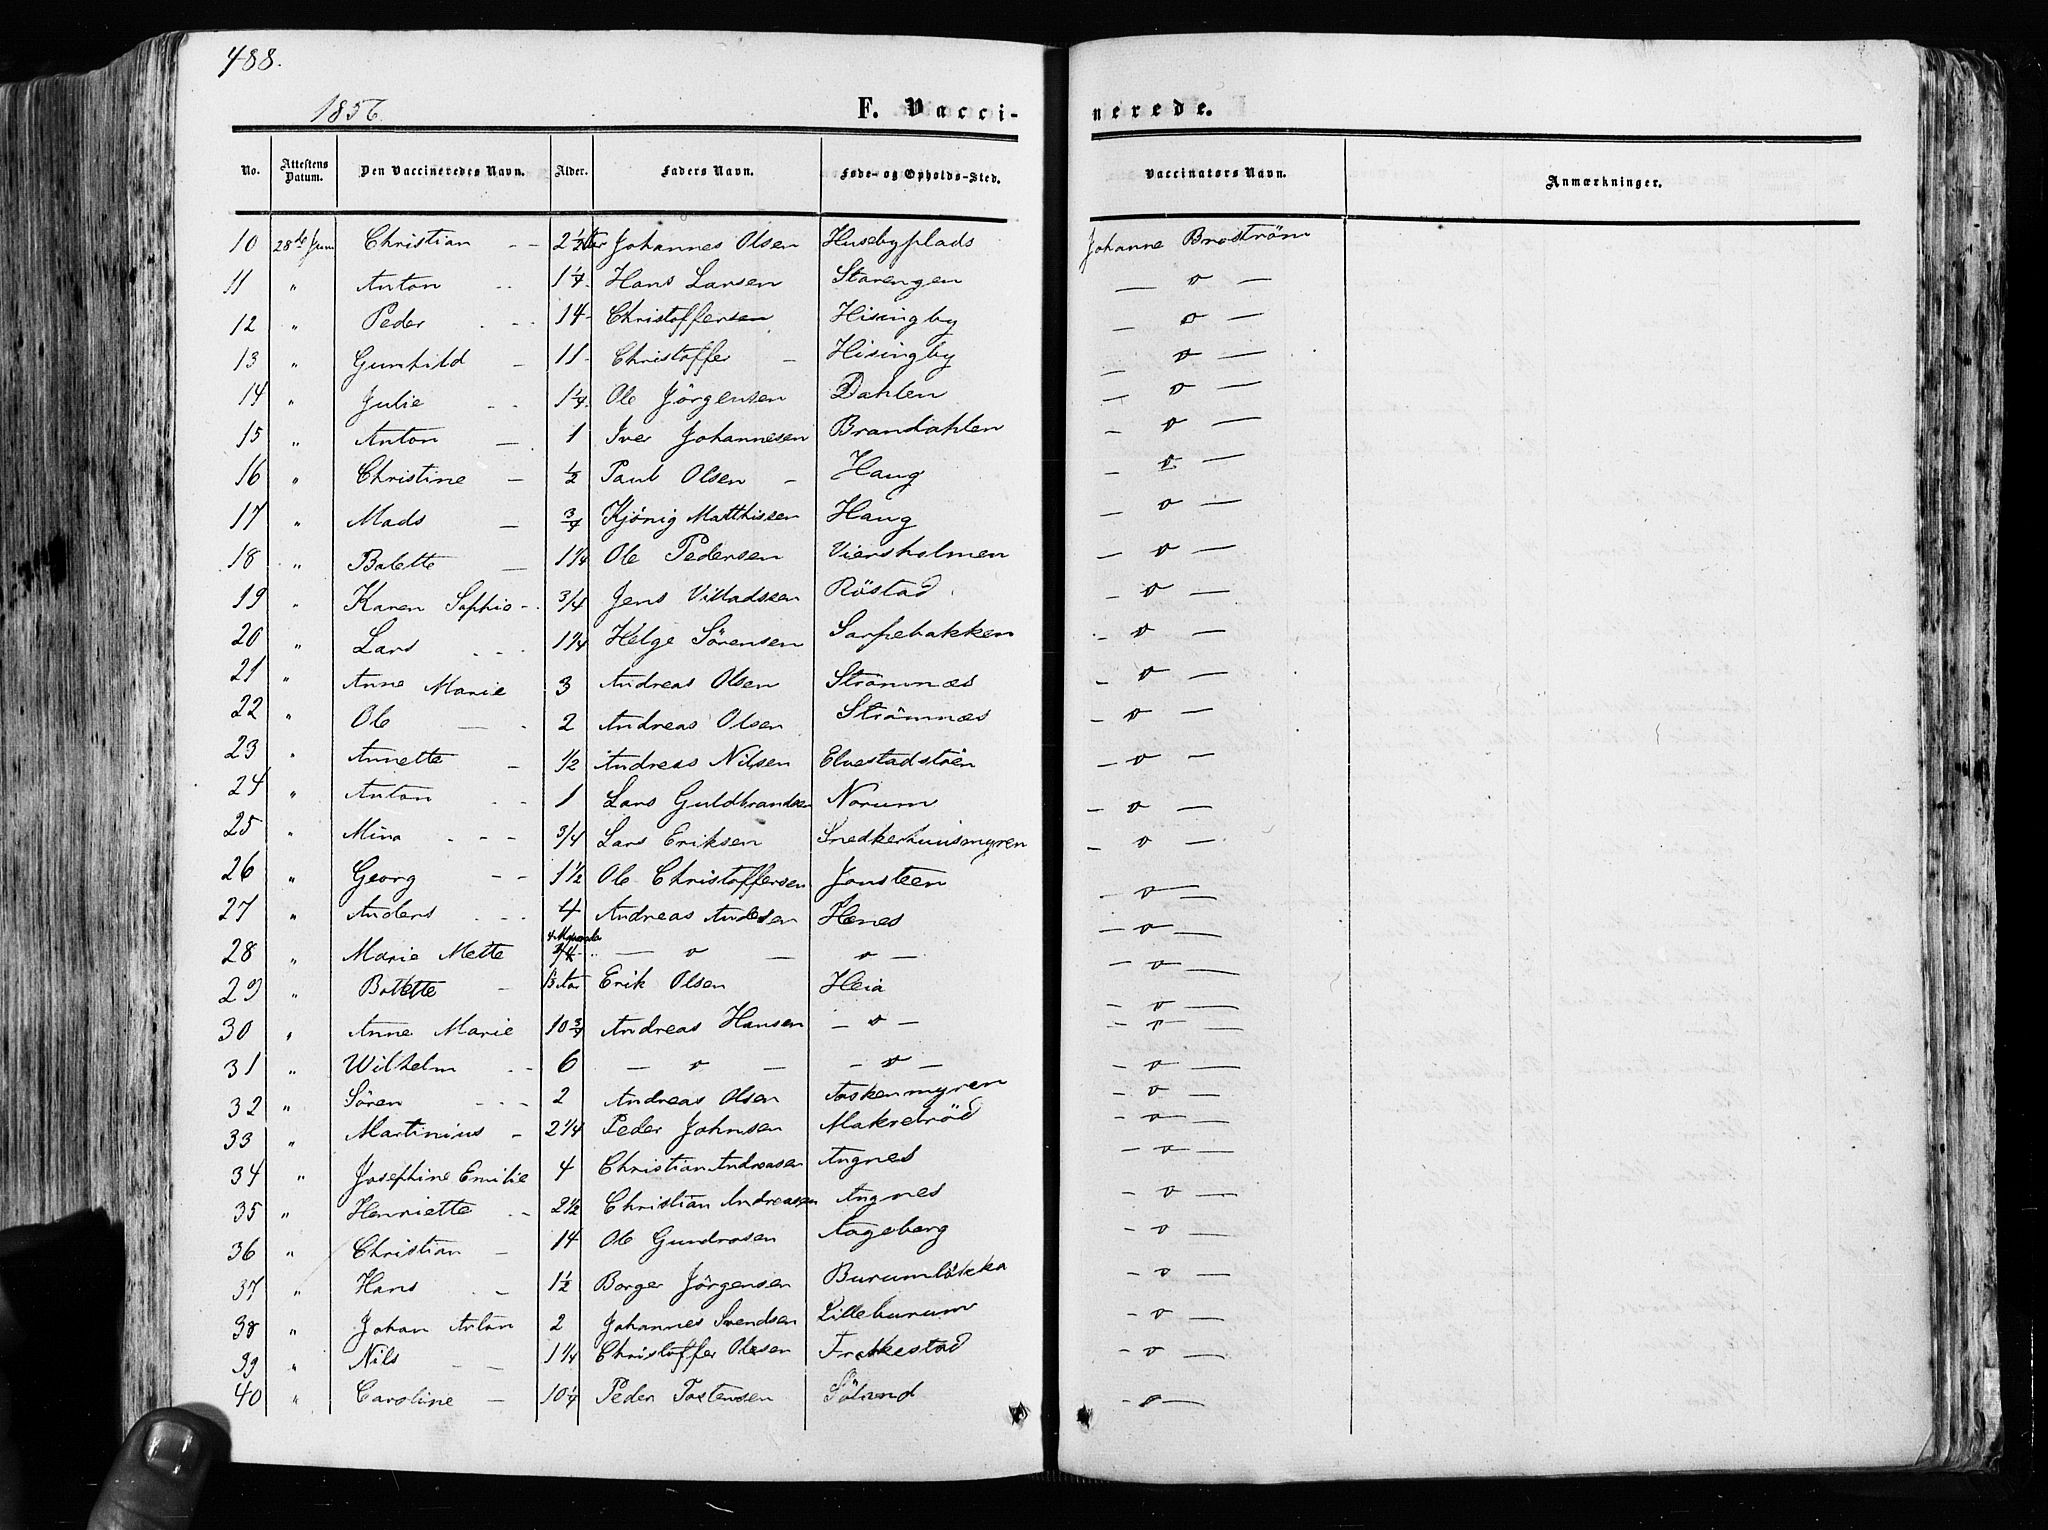 488.
1856.
F. Vacci-
nerede.
No. Attestens Datum. Den Vaccineredes Navn. Alder. Faders Navn. Føde- og Opholds-Sted. Vaccinatørs Navn. Anmærkninger.
10 28de Juni Christian - - 2 1/2 Aar Johannes Olsen Husebyplads Johanne Broström
11 " Anton - - 1 1/4 Hans Larsen Starengen — o —
12 " Peder - - 14 - Christoffersen Hisingby — o —
13 " Gunhild - 11 - Christoffer - Hisingby — o —
14 " Julie - - 1 1/4 Ole Jörgensen Dahlen — o —
15 " Anton — 1 Iver Johannesen Brandahlen — o —
16 " Christine — 1/2 Paul Olsen - Haug — o —
17 " Mads — 3/4 Kjönig Matthisen Haug — o —
18 " Bolette — 1 1/4 Ole Pedersen Viersholmen — o —
19 " Karen Sophie - 3/4 Jens Villadsen Röstad — o —
20 " Lars - - - 1 1/4 Helge Sörensen Sarpebakken — o —
21 " Anne Marie 3 Andreas Olsen Strömnæs — o —
22 " Ole — - 2 Andreas Olsen Strömnæs — o —
23 " Annette - 1/2 Andreas Nilsen Elvestadstöen — o —
24 " Anton - - 1 Lars Guldbrandsen Norum — o —
25 " Mina - - - 3/4 Lars Eriksen Snedkerhuusmyren — o —
26 " Georg - - 1 1/2 Ole Christoffersen Jonsteen — o —
27 " Anders - - - 4 Andreas Andesen Henes — o —
28 " Marie Mette 3/4 — o — — o — — o —
29 " Bolette - Erik Olsen Heia — o —
30 " Anne Marie 10 3/4 Andreas Hansen — o — — o —
31 " Wilhelm - - 6 — o — — o — — o —
32 " Sören - - - 2 Andreas Olsen Askenmyren — o —
33 " Martinius - 2 1/4 Peder Johnsen Makrelröd — o —
34 " Josephine Emilie 4 Christian Andreasen Angnes — o —
35 " Henriette - - 2 1/2 Christian Andreasen Angnes — o —
36 " Christian - 14 Ole Gundrosen Aageberg — o —
37 " Hans - - 1 1/2 Borger Jörgensen Burumlökka — o —
38 " Johan Anton 2 Johannes Svendsen Lilleburum — o —
39 " Nils - - 1 1/4 Christoffer Olesen Frakkestad — o —
40 " Caroline - 10 1/4 Peder Tostensen Sölund — o —